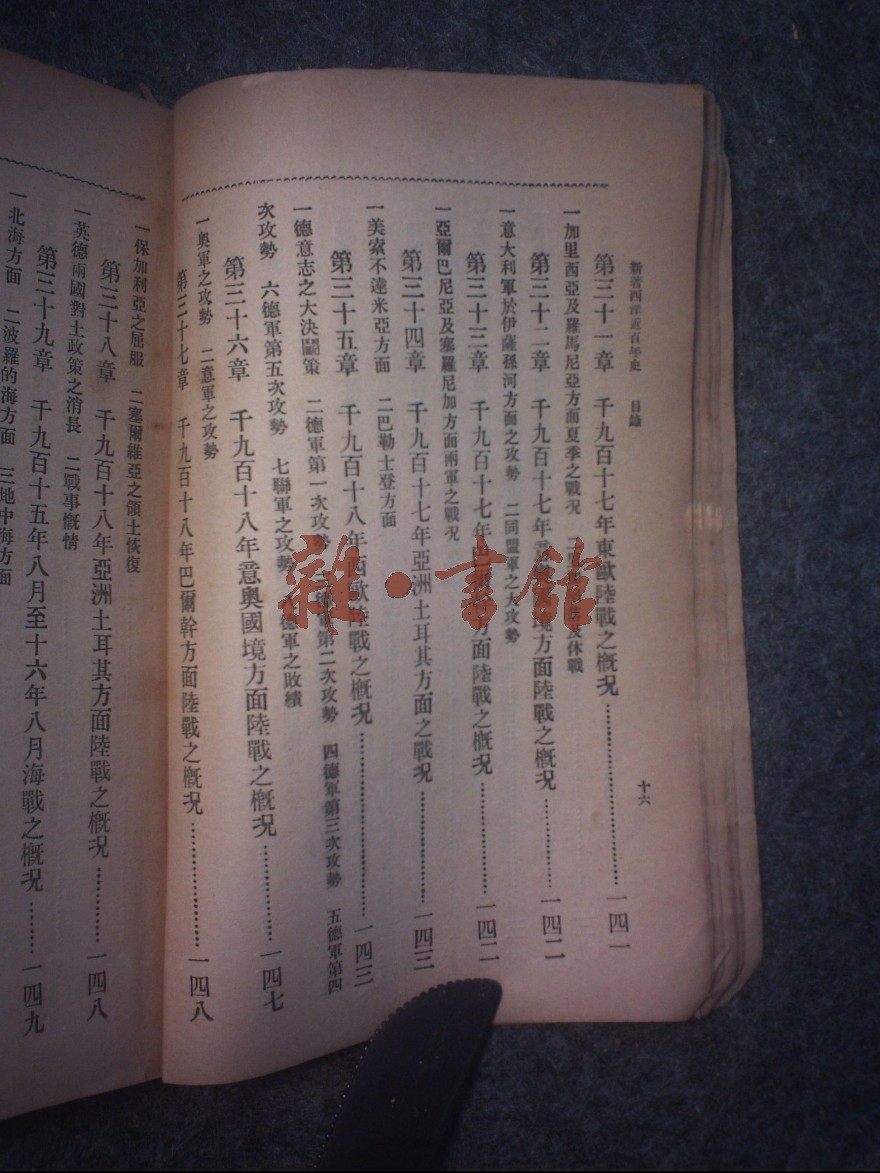 新著西洋近百年史　目錄
十六
第三十一章　千九百十七年東歐陸戰之槪況…………一四一
一加里西亞及羅馬尼亞方面夏季之戰況　二　及休戰
第三十二章　千九百十七年意奧國境方面陸戰之槪況…………一四二
一意大利軍於伊薩孫河方面之攻勢　二同盟軍之大攻勢
第三十三章　千九百十七年巴爾幹方面陸戰之槪況…………一四二
一亞爾巴尼亞及塞羅尼加方面兩軍之戰況
第三十四章　千九百十七年亞洲土耳其方面之戰況…………一四三
一美索不達米亞方面　二巴勒士登方面
第三十五章　千九百十八年西歐陸戰之槪況…………一四三
一德意志之大決鬭策　二德軍第一次攻勢　三德軍第二次攻勢　四德軍第三次攻勢　五德軍第四
次攻勢　六德軍第五次攻勢　七聯軍之攻勢　八德軍之敗績
第三十六章　千九百十八年意奧國境方面陸戰之槪況…………一四七
一奧軍之攻勢　二意軍之攻勢
第三十七章　千九百十八年巴爾幹方面陸戰之槪況…………一四八
一保加利亞之屈服　二塞爾維亞之領土恢復
第三十八章　千九百十八年亞洲土耳其方面陸戰之槪況…………一四八
一英德兩國對土政策之消長　二戰事慨情
第三十九章　千九百十五年八月至十六年八月海戰之槪況…………一四九
一北海方面　二波羅的海方面　三地中海方面
雜·書館